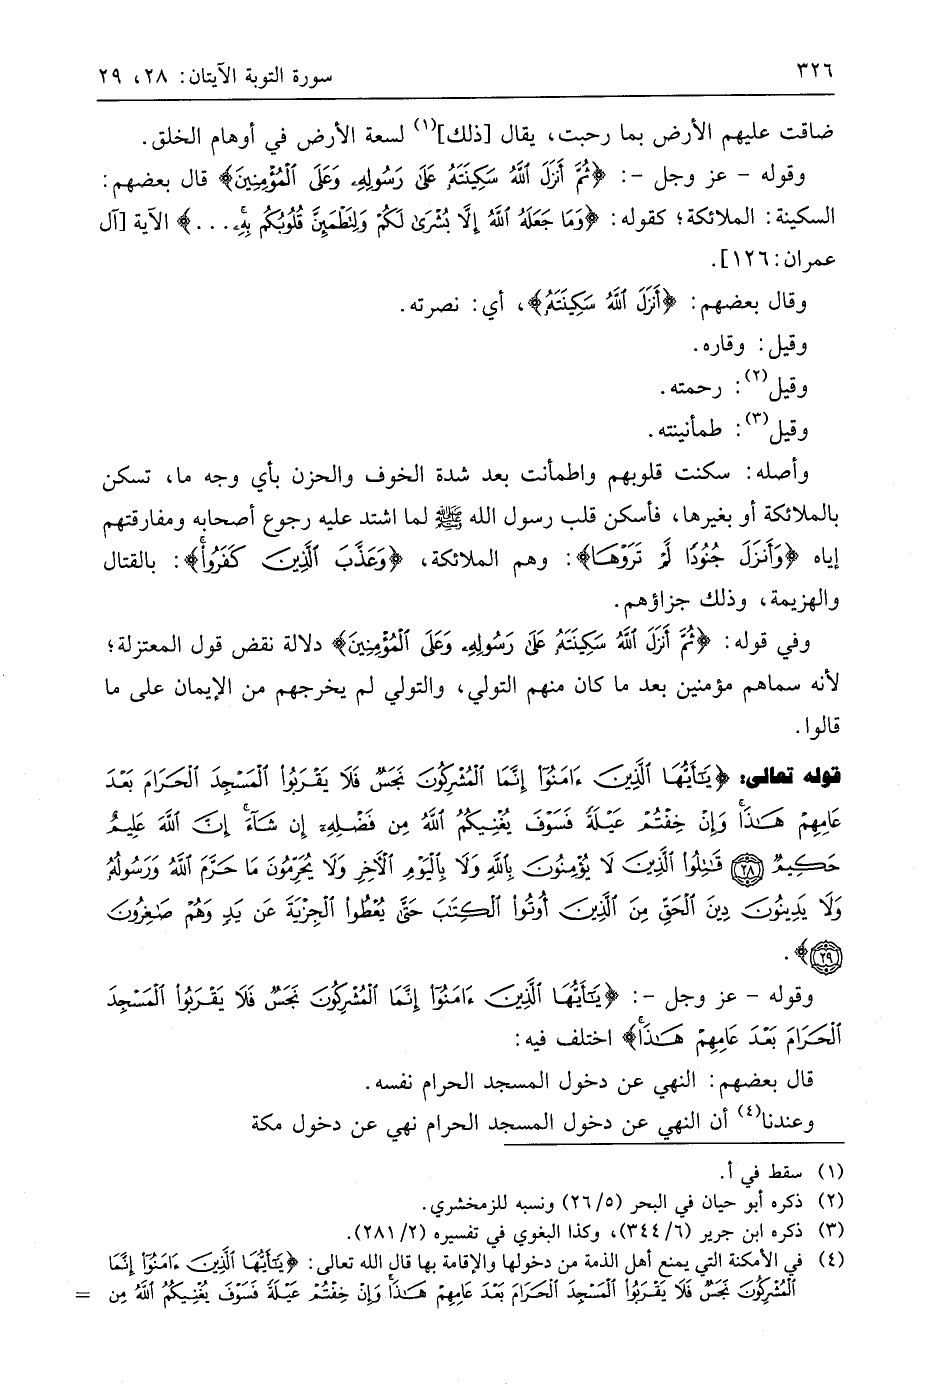 ٣٢٦ سورة التوبة الآيتان: ٢٨، ٢٩
ضاقت عليهم الأرض بما رحبت، يقال [ذلك](١) لسعة الأرض في أوهام الخلق.
وقوله - عز وجل -: ﴿ثُمَّ أَنزَلَ ٱللَّهُ سَكِينَتَهُۥ عَلَىٰ رَسُولِهِۦ وَعَلَى ٱلْمُؤْمِنِينَ﴾ قال بعضهم:
السكينة: الملائكة؛ كقوله: ﴿وَمَا جَعَلَهُ ٱللَّهُ إِلَّا بُشْرَىٰ لَكُمْ وَلِتَطْمَئِنَّ قُلُوبُكُم بِهِۦ...﴾ الآية [آل
عمران: ١٢٦].
وقال بعضهم: ﴿أَنزَلَ ٱللَّهُ سَكِينَتَهُۥ﴾، أي: نصرته.
وقيل: وقاره.
وقيل(٢): رحمته.
وقيل(٣): طمأنينته.
وأصله: سكنت قلوبهم واطمأنت بعد شدة الخوف والحزن بأي وجه ما، تسكن
بالملائكة أو بغيرها، فأسكن قلب رسول الله ﷺ لما اشتد عليه رجوع أصحابه ومفارقتهم
إياه ﴿وَأَنزَلَ جُنُودًا لَّمْ تَرَوْهَا﴾: وهم الملائكة، ﴿وَعَذَّبَ ٱلَّذِينَ كَفَرُوا۟ۚ﴾: بالقتال
والهزيمة، وذلك جزاؤهم.
وفي قوله: ﴿ثُمَّ أَنزَلَ ٱللَّهُ سَكِينَتَهُۥ عَلَىٰ رَسُولِهِۦ وَعَلَى ٱلْمُؤْمِنِينَ﴾ دلالة نقض قول المعتزلة؛
لأنه سماهم مؤمنين بعد ما كان منهم التولي، والتولي لم يخرجهم من الإيمان على ما
قالوا.
قوله تعالى: ﴿يَٰٓأَيُّهَا ٱلَّذِينَ ءَامَنُوٓا۟ إِنَّمَا ٱلْمُشْرِكُونَ نَجَسٌ فَلَا يَقْرَبُوا۟ ٱلْمَسْجِدَ ٱلْحَرَامَ بَعْدَ
عَامِهِمْ هَٰذَاۚ وَإِنْ خِفْتُمْ عَيْلَةً فَسَوْفَ يُغْنِيكُمُ ٱللَّهُ مِن فَضْلِهِۦٓ إِن شَآءَۚ إِنَّ ٱللَّهَ عَلِيمٌ
حَكِيمٌ ٢٨ قَٰتِلُوا۟ ٱلَّذِينَ لَا يُؤْمِنُونَ بِٱللَّهِ وَلَا بِٱلْيَوْمِ ٱلْأَخِرِ وَلَا يُحَرِّمُونَ مَا حَرَّمَ ٱللَّهُ وَرَسُولُهُۥ
وَلَا يَدِينُونَ دِينَ ٱلْحَقِّ مِنَ ٱلَّذِينَ أُوتُوا۟ ٱلْكِتَٰبَ حَتَّىٰ يُعْطُوا۟ ٱلْجِزْيَةَ عَن يَدٍ وَهُمْ صَٰغِرُونَ
٢٩﴾.
وقوله - عز وجل -: ﴿يَٰٓأَيُّهَا ٱلَّذِينَ ءَامَنُوٓا۟ إِنَّمَا ٱلْمُشْرِكُونَ نَجَسٌ فَلَا يَقْرَبُوا۟ ٱلْمَسْجِدَ
ٱلْحَرَامَ بَعْدَ عَامِهِمْ هَٰذَاۚ﴾ اختلف فيه:
قال بعضهم: النهي عن دخول المسجد الحرام نفسه.
وعندنا(٤) أن النهي عن دخول المسجد الحرام نهي عن دخول مكة
(١) سقط في أ.
(٢) ذكره أبو حيان في البحر (٢٦/٥) ونسبه للزمخشري.
(٣) ذكره ابن جرير (٣٤٤/٦)، وكذا البغوي في تفسيره (٢٨١/٢).
(٤) في الأمكنة التي يمنع أهل الذمة من دخولها والإقامة بها قال الله تعالى: ﴿يَٰٓأَيُّهَا ٱلَّذِينَ ءَامَنُوٓا۟ إِنَّمَا
ٱلْمُشْرِكُونَ نَجَسٌ فَلَا يَقْرَبُوا۟ ٱلْمَسْجِدَ ٱلْحَرَامَ بَعْدَ عَامِهِمْ هَٰذَاۚ وَإِنْ خِفْتُمْ عَيْلَةً فَسَوْفَ يُغْنِيكُمُ ٱللَّهُ مِن =